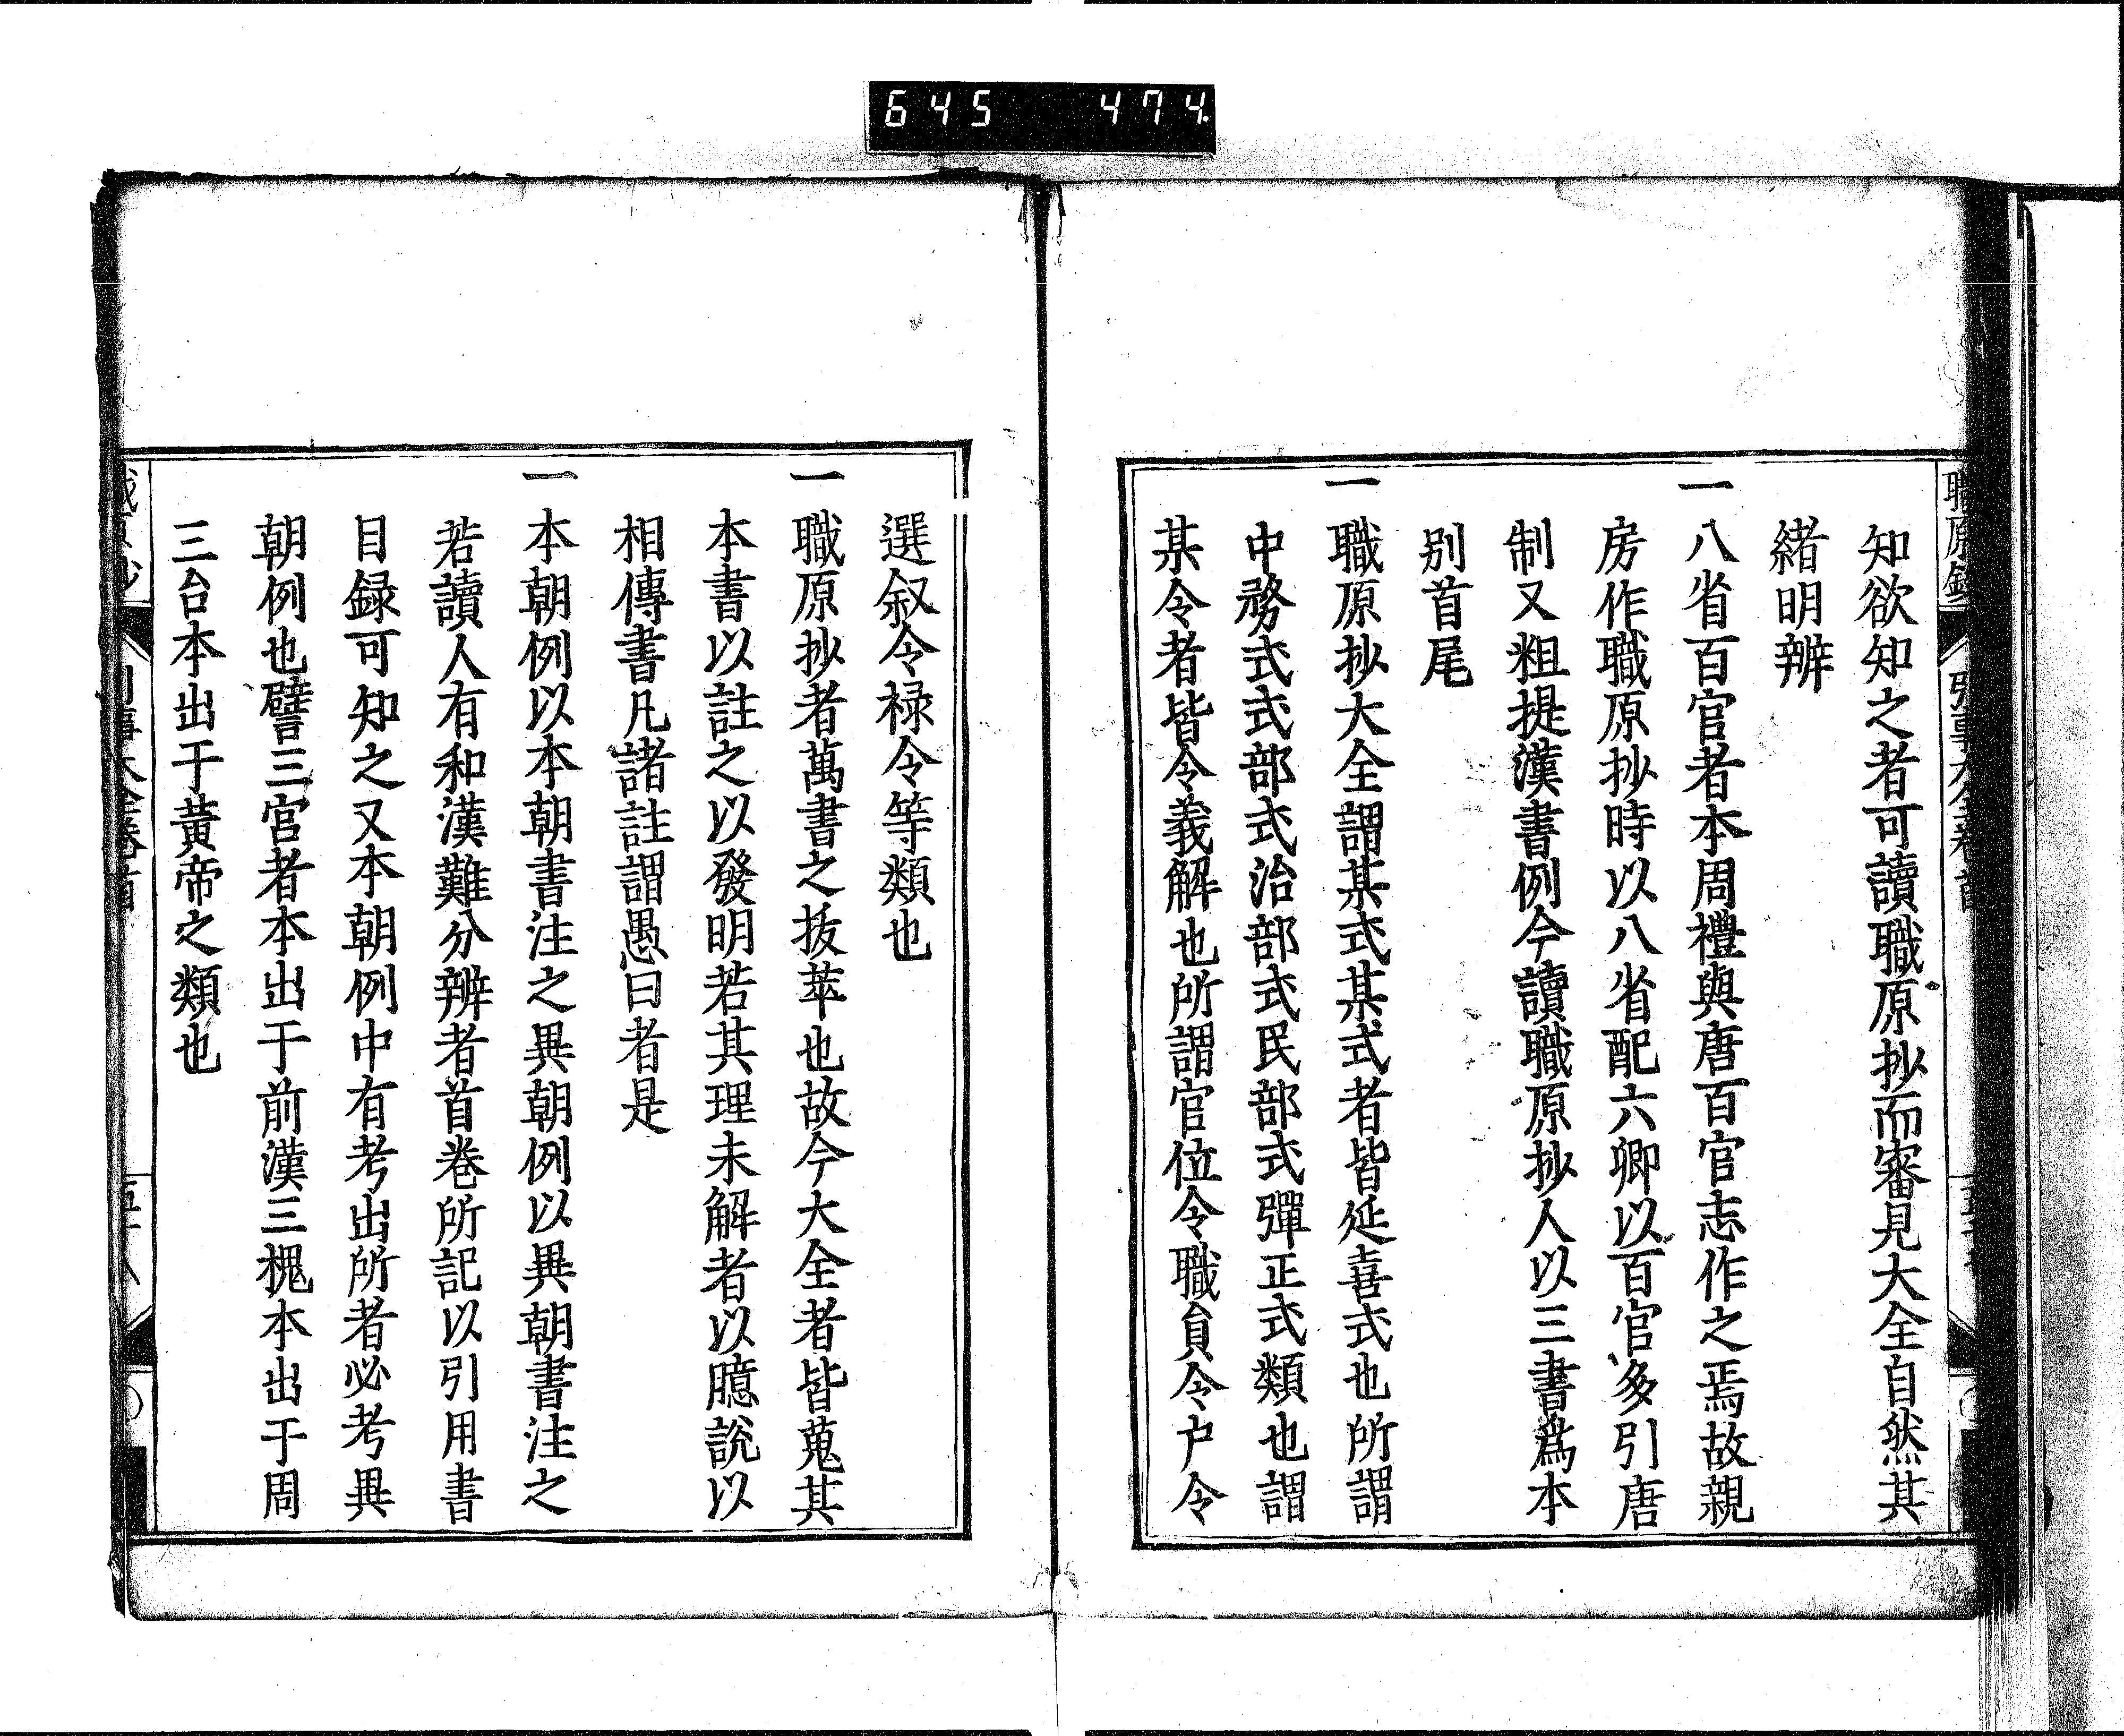 645 474
知欲知之者可讀職原抄而審見大全自然其
緒明辨
一八省百官者本周禮與唐百官志作之焉故親
房作職原抄時以八省配六卿以百官多引唐
制又粗提漢書例今讀職原抄人以三書爲本
別首尾
一職原抄大全謂某式某式者皆延喜式也所謂
中務式式部式治部式民部式彈正式類也謂
某令者皆令義解也所謂官位令職員令户令
選叙令禄令等類也
一職原抄者萬書之抜萃也故今大全者皆蒐其
本書以註之以發明若其理未解者以臆説以
相傳書凡諸註謂愚曰者是
一本朝例以本朝書注之異朝例以異朝書注之
若讀人有和漢難分辨者首巻所記以引用書
目録可知之又本朝例中有考出所者必考異
朝例也譬三宮者本出于前漢三槐本出于周
三台本出于黄帝之類也